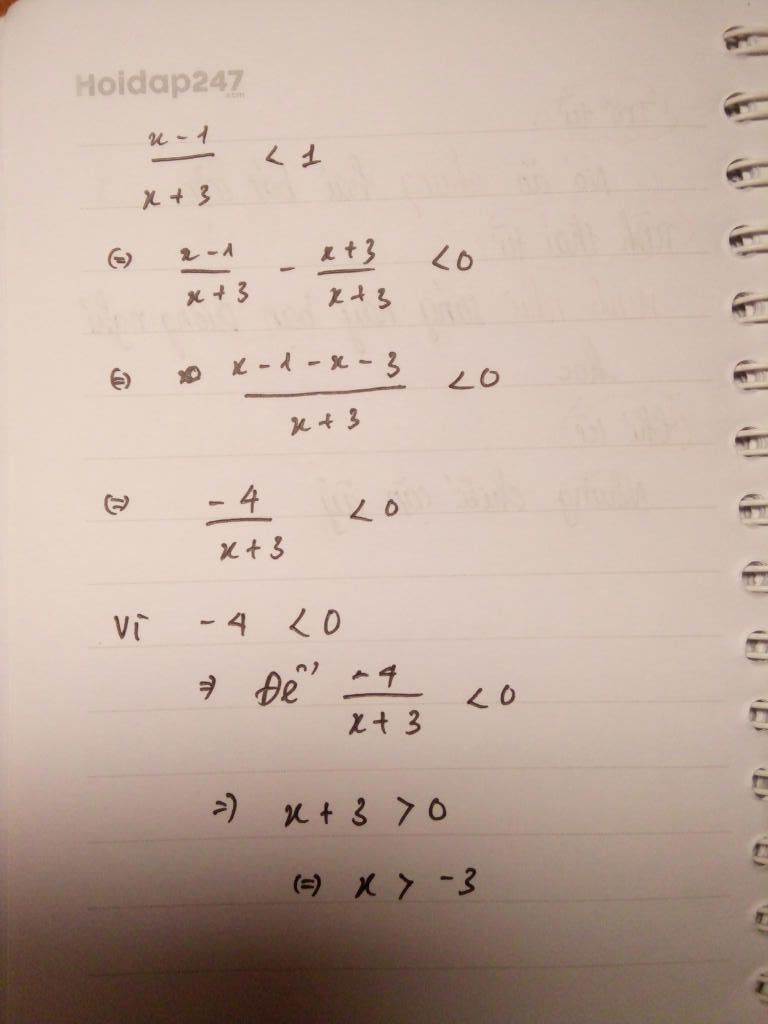 Hoidap247
.com
x - 1 / x + 3 < 1
(=) x - 1 / x + 3 - x + 3 / x + 3 < 0
(=) x - 1 - x - 3 / x + 3 < 0
(=) - 4 / x + 3 < 0
Vì - 4 < 0
=> Để - 4 / x + 3 < 0
=) x + 3 > 0
(=) x > - 3